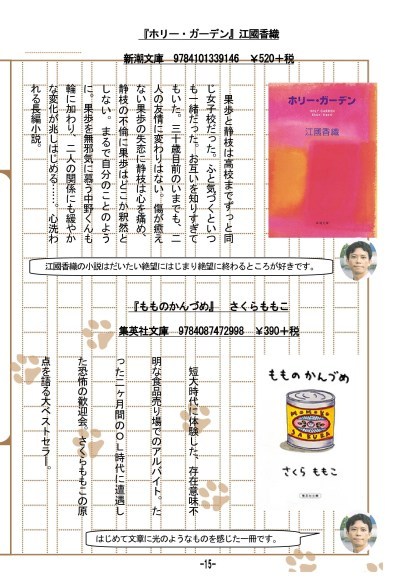 『ホリー・ガーデン』江國香織
新潮文庫　9784101339146　￥520＋税
果歩と静枝は高校までずっと同
じ女子校だった。ふと気づくといつ
も一緒だった。お互いを知りすぎて
もいた。三十歳目前のいまでも、二
人の友情に変わりはない。傷が癒え
ない果歩の失恋に静枝は心を痛め、
静枝の不倫に果歩はどこか釈然と
しない。まるで自分のことのよう
に。果歩を無邪気に慕う中野くんも
輪に加わり、二人の関係にも緩やか
な変化が兆しはじめる……。心洗わ
れる長編小説。
ホリー・ガーデン
江國香織
江國香織の小説はだいたい絶望にはじまり絶望に終わるところが好きです。
『もものかんづめ』　さくらももこ
集英社文庫　9784087472998　￥390＋税
短大時代に体験した、存在意味不
明な食品売り場でのアルバイト。た
った二ヶ月間のＯＬ時代に遭遇し
た恐怖の歓迎会。さくらももこの原
点を語る大ベストセラー。
もものかんづめ
MOMOKO
SAKURA
さくらももこ
はじめて文章に光のようなものを感じた一冊です。
-15-